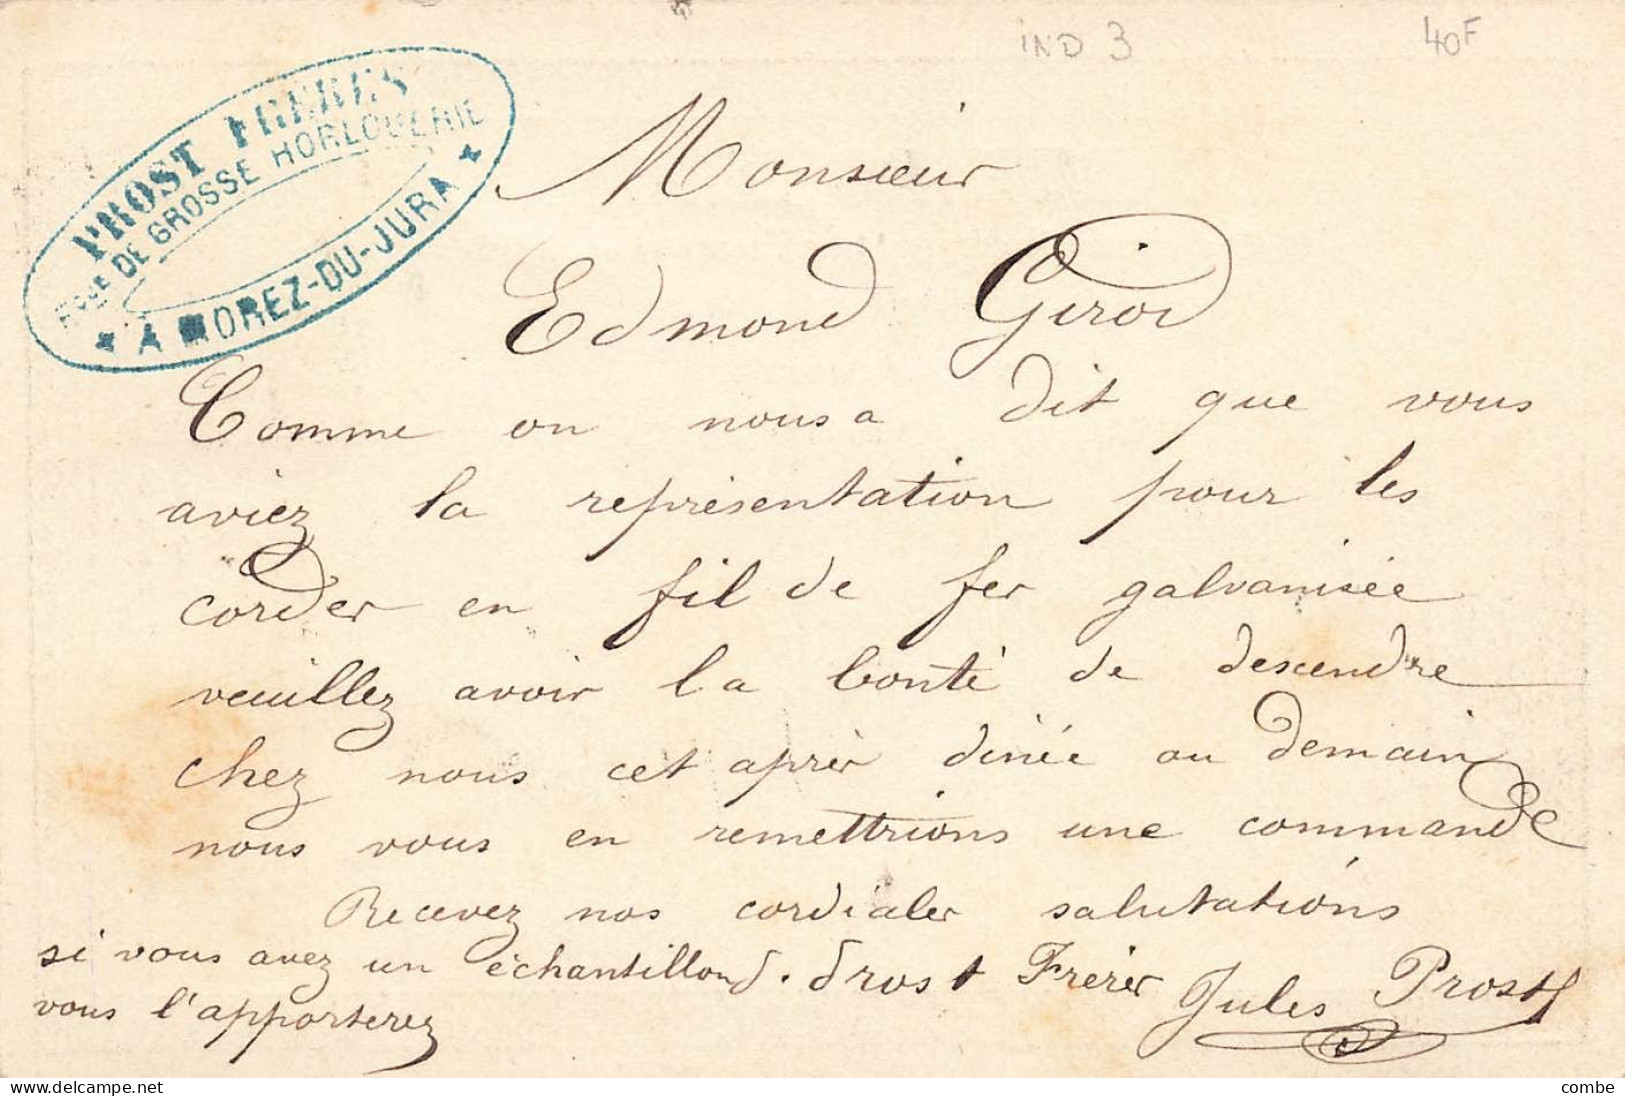 IND 3 40F
PROST FRERES
Fque DE GROSSE HORLOGERIE
A MOREZ-DU-JURA
Monsieur
Edmond Girod
Comme on nous a dit que vous
aviez la représentation pour les
corder en fil de fer galvanisée
veuillez avoir la bonté de descendre
chez nous cet après dinée ou demain
nous vous en remettrions une commande
Recevez nos cordiales salutations
si vous avez un échantillond. Prost Frères Jules Prost
vous l'apporterez
combe